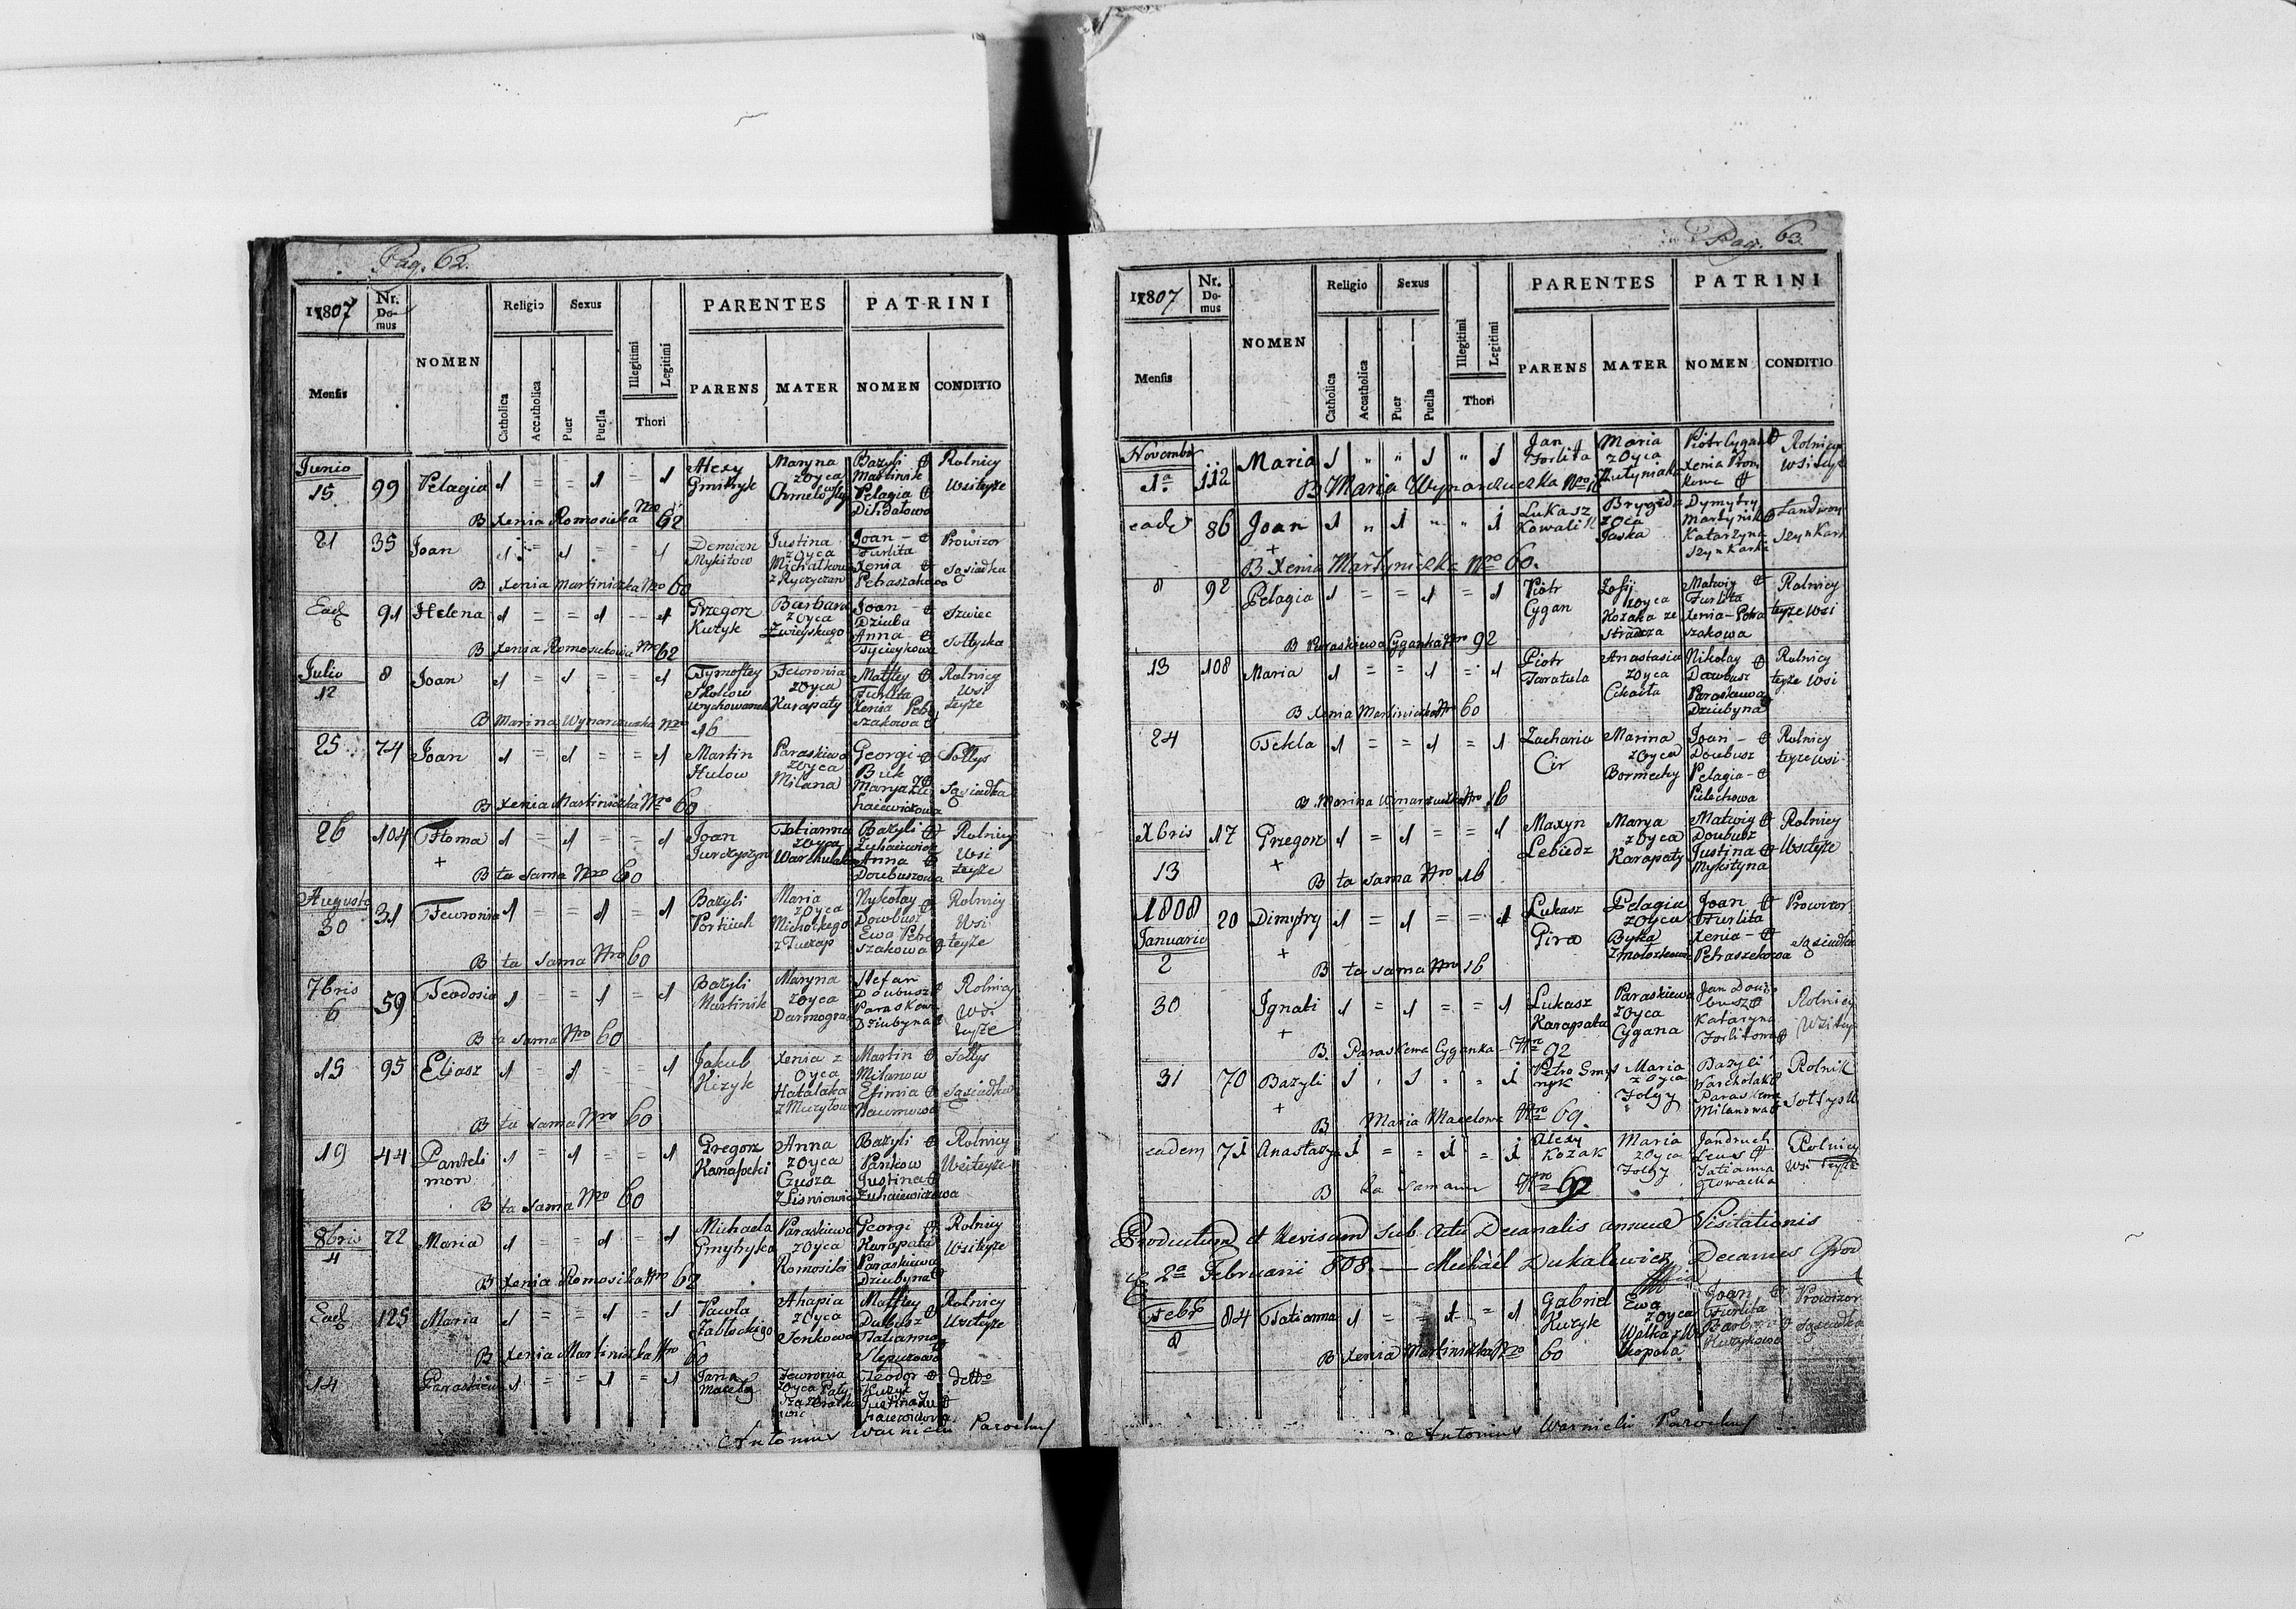 Pag. 62.
1807
Nr. Domus
NOMEN
Religio
Sexus
PARENTES
PATRINI
Mensis
Catholica
Accatholica
Puer
Puella
Illegitimi
Legitimi
Thori
PARENS
MATER
NOMEN
CONDITIO
Junio 15 99 Pelagia 1 = = 1 = 1 Alexy Gmitryk Maryna z Oyca Bazyli Martinik Pelagia Rolnicy wsi teyże
B Xenia Romosicka Nro 62
21 35 Joan 1 = 1 = = 1 Demian Mykitow Justina z Oyca Joan Furlita Xenia Petraszakowa Prowizor Sąsiadka
B Xenia Martiniczka Nro 60
Ead 91 Helena 1 = = 1 = 1 Grzegorz Kuzyk Barbara z Oyca Joan Dziuba Anna Szwiec Sołtyska
B Xenia Romosickowa Nro 62
Julio 12 8 Joan 1 = 1 = = 1 Tymoftey wychowanek Fewronia z Oyca Karapaty Mattey Furlita Xenia Petraszakowa Rolnicy wsi teyże
B Marina Wynarczuczka Nro 16
25 74 Joan 1 = 1 = = 1 Martin Hulow Paraskiewa z Oyca Milana Georgi Buk Marya Sołtys Sąsiadka
B Xenia Martiniczka Nro 60
26 104 Thoma 1 = 1 = = 1 Joan Jurczyszyn Tatianna z Oyca Warchulaka Bazyli Żuhaiewicz Anna Doubuszowa Rolnicy wsi teyże
+
B ta sama Nro 60
Augusto 30 31 Fewronia 1 = = 1 = 1 Bazyli Maria z Oyca Nykołay Dowbusz Ewa Petraszakowa Rolnicy wsi teyże
B ta sama Nro 60
7bris 6 59 Teodosia 1 = = 1 = 1 Bazyli Martinik Maryna z Oyca Stefan Doubusz Paraskewa Dziubyna Rolnicy wsi teyże
B ta sama Nro 60
15 95 Eliasz 1 = 1 = = 1 Jakub Kizyk Xenia z Oyca Hatalaka Martin Milanow Efimia Naumowa Sołtys Sąsiadka
B ta sama Nro 60
19 44 Pantelimon 1 = 1 = = 1 Gregorz Anna z Oyca Bazyli Pankow Justina Żuhaiewiczowa Rolnicy wsi teyże
B ta sama Nro 60
8bris 4 72 Maria 1 = = 1 = 1 Michaela Gmytryka Paraskiewa z Oyca Romosiki Georgi Karapata Paraskiewa Dziubyna Rolnicy wsi teyże
B Xenia Romosicka Nro 62
Ead 125 Maria 1 = = 1 = 1 Pawla Zabłockiego Ahapia z Oyca Senkowa Mattey Dubusz Tatianna Rolnicy wsi teyże
B Xenia Martiniczka Nro 60
14 Paraskiewa 1 = = 1 = 1 Jana Fewronia z Oyca Teodor Kuzyk Justina detto
Antonius Warnicki Parochus
Pag. 63.
1807
Nr. Domus
NOMEN
Religio
Sexus
PARENTES
PATRINI
Mensis
Catholica
Accatholica
Puer
Puella
Illegitimi
Legitimi
Thori
PARENS
MATER
NOMEN
CONDITIO
Novembr 1a 112 Maria 1 " " 1 " 1 Jan Forlita Maria z Oyca Piotr Cygan Xenia Rolnicy wsi teyże
B Maria Wynarczuczka Nro 16
eade 86 Joan 1 " 1 " " 1 Lukasz Kowalik Brygida z Oca Jaska Dymytry Martynik Katarzyna Szynkarka
+
B Xenia Martyniczka Nro 60.
8 92 Pelagia 1 = = 1 = 1 Piotr Cygan Zofij z Oyca Kozaka Matwiy Furlita Xenia Petraszakowa Rolnicy teyże wsi
B Paraskiewa Cyganka Nro 92
13 108 Maria 1 = = 1 = 1 Piotr Taratula Anastasia z Oyca Nikolay Dowbusz Paraskiewa Dziubyna Rolnicy teyże wsi
B Xenia Martiniczka Nro 60
24 Tekla 1 = = 1 = 1 Zacharia Cir Marina z Oyca Joan Doubusz Pelagia Rolnicy teyże wsi
B Marina Winarczuczka Nro 16
Xbris 13 17 Grzegorz 1 = 1 = = 1 Maxyn Lebiedz Marya z Oyca Karapaty Matwiy Doubusz Justina Mykityna Rolnicy wsi teyże
+
B ta sama Nro 16
1808 Januario 2 20 Dimytry 1 = 1 = = 1 Lukasz Pelagia z Oyca Byka Joan Furlita Xenia Petraszekowa Prowizor sąsiadka
+
B ta sama Nro 16
30 Ignati 1 = 1 = = 1 Lukasz Karapata Paraskiewa z Oyca Cygana Jan Doubusz Kataryna Forlitowa Rolnicy wsi teyże
+
B. Paraskewa Cyganka Nro 92
31 70 Bazyli 1 . 1 . . 1 Petro Gmytryk Maria z Oyca Bazyli Warcholak Paraskewa Milanowa Rolnik Sołtyska
+
B Maria Macelowa Nro 69.
eadem 71 Anastazya 1 = = 1 = 1 Alexy Kozak Maria z Oyca Jandruch Tatianna Głowacka Rolnicy wsi teyże
B ta sama Nro 62
Productum et Revisum sub Actu Decanalis annuae Visitationis
2a Februarii 808. — Michael Dukalewicz Decanus Grod
Febr 8 84 Tatianna 1 = = 1 = 1 Gabriel Kuzyk Ewa z Oyca Joan Furlita Barbara Kuzykowa Prowizor Sąsiadka
B Xenia Martiniczka Nro 60
Antonius Warnicki Parochus